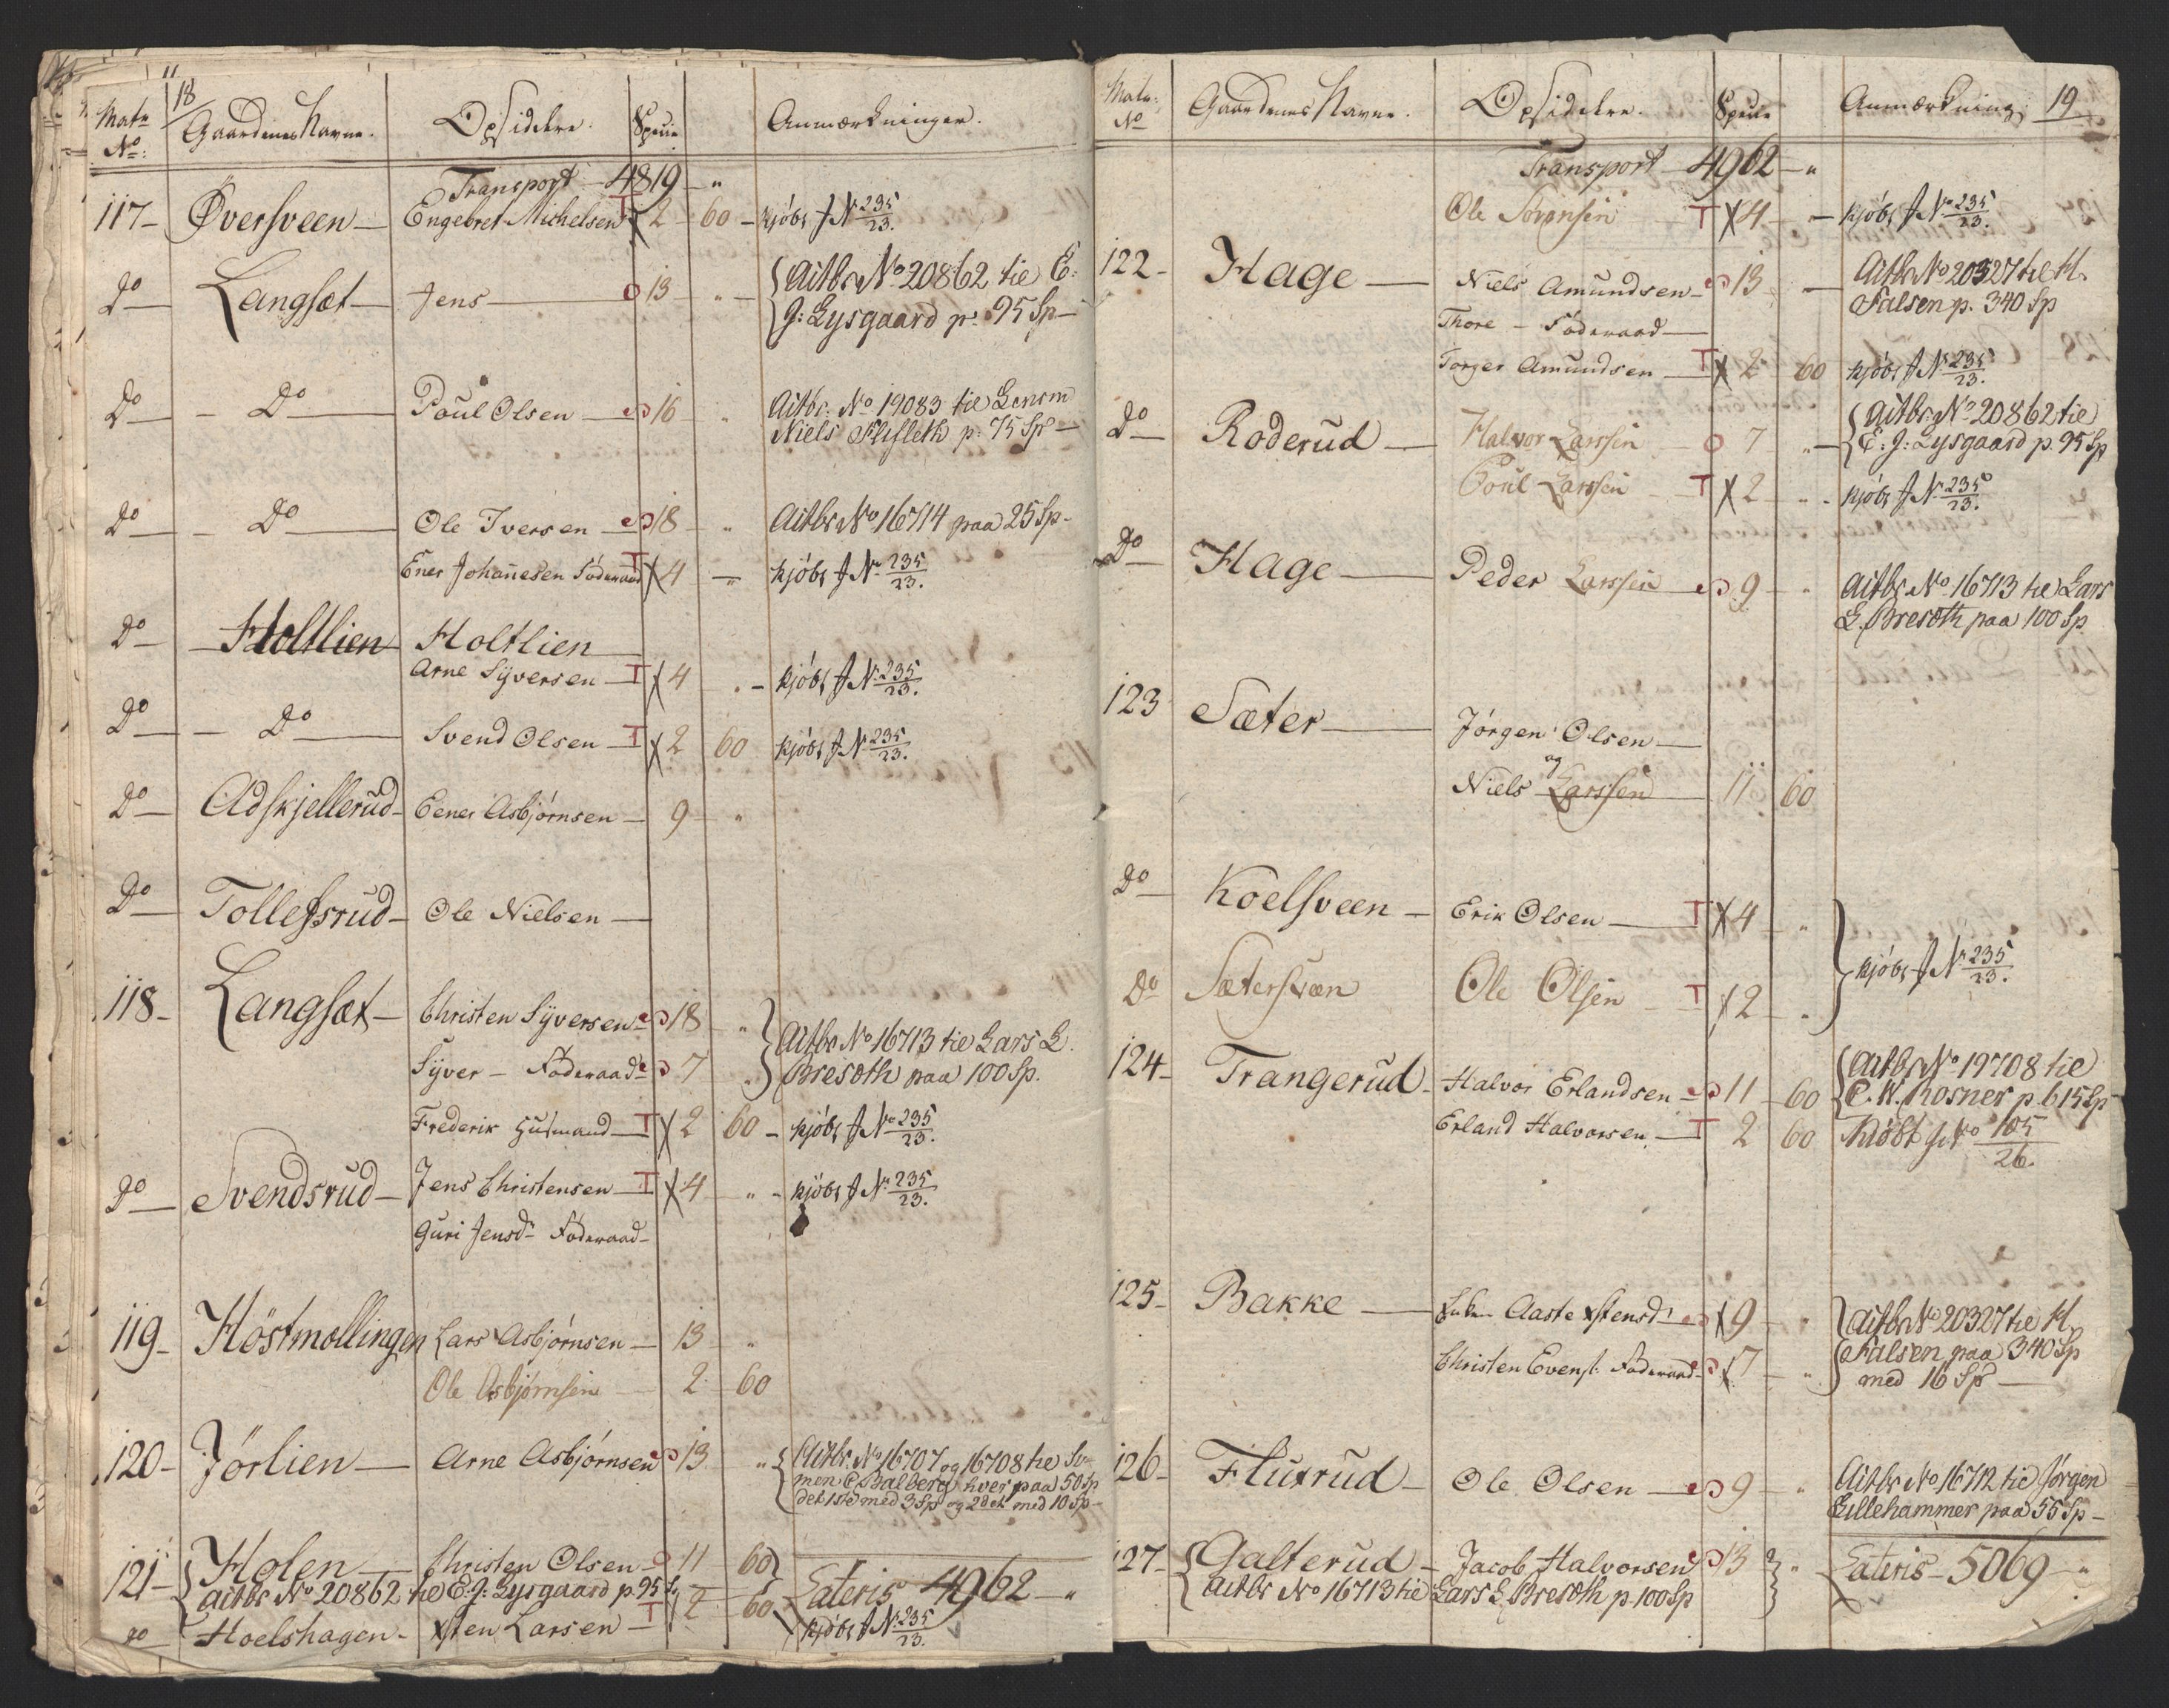 18
Matr No: Gaardenes Navne. Opsiddere. Specie Anmærkninger.
Transport 4819 "
117 Øversveen Engebret Michelsen T X 2 60 kjöbt J No 235/23.
Do Langsæt Jens 13 " Aitbr No 20862 til E:
J: Lysgaard p: 95 Sp
Do Do Poul Olsen 16 " Aitbr. No 19083 til Lensm
Niels Flifleth p. 75 Sp
Do Do Ole Iversen 18 " Aitbr No 16714 paa 25 Sp
Ener Johannesen Föderaad T X 4 " kjöbt J No 235/23.
Do Holtlien Holtlien
Arne Syversen T X 4 kjöbt J No 235/23.
Do Do Svend Olsen T X 2 60 kjöbt J No 235/23.
Do Adskjellerud Eener Asbjørnsen 9 "
Do Tollefsrud Ole Nielsen
118 Langsæt Christen Syversen 18 " Aitbr No 16713 til Lars L.
Syver Föderaad 7 " Bresoth paa 100 Sp.
Frederik Husmand T X 2 60 kjöbt J No 235/23.
Do Svendsrud Jens Christensen T X 4 " kjöbt J No 235/23.
Guri Jensdr Föderaad
119 Höstmollingen Lars Asbjørnsen 13 "
Ole Asbjørnsen 2 60
120 Jörlien Arne Asbjørnsen 13 " Aitbr. No 16707 og 16708 til
men C. Balberg hver paa 50 Sp
det 1ste med 3 Sp og 2det med 10 Sp
121 Holen Christen Olsen 11 60
Aitbr No 20862 til E: J: Lysgaard p. 95 S. Lateris 4962 "
Do Hoelshagen Xsten Larsen T X 2 60 kjöbt J No 235/23.
Matr: No Gaardenes Navne. Opsiddere. Specie Anmærkning 19
Transport 4962 "
Ole Sörensen T X 4 kjöbt J No 235/23.
122 Hage Niels Amundsen 13 Aitbr No 20327 til H.
Falsen p. 340 Sp
Thore Föderaad
Torger Amundsen T X 2 60 kjöbt J No 235/23.
Do Roderud Halvor Larssen 7 " Aitbr No 20862 til
E: J: Lysgaard p. 95 Sp
Poul Larssen T X 2 " kjöbt J No 235/23.
Do Hage Peder Larssen 9 " Aitbr No 16713 til Lars
L. Bresoth paa 100 Sp
123 Sæter Jörgen Olsen
og
Niels Larssen 11 60
Do Koelsveen Erik Olsen T X 4 "
kjöbt J No 235/23.
Do Sætersveen Ole Olsen T X 2 "
124 Trangerud Halvor Erlandsen 11 60 Aitbr No 19708 til
C. W. Rosner p. 615 Sp
Erland Halvorsen T 2 60 Kiöbt J No 105/26.
125 Bakke Enken Aaste Xstensdr X 9 " Aitbr No 20327 til H.
Falsen paa 340 Sp
Christen Evens. Föderaad X 7 " med 16 Sp
126 Fluxrud Ole Olsen 9 " Aitbr No 16712 til Jörgen
Lillehammer paa 55 Sp
127 Galterud Jacob Halvorsen 13 " Lateris 5069 "
Aitbr No 16713 til Lars L. Bresoth p. 100 Sp